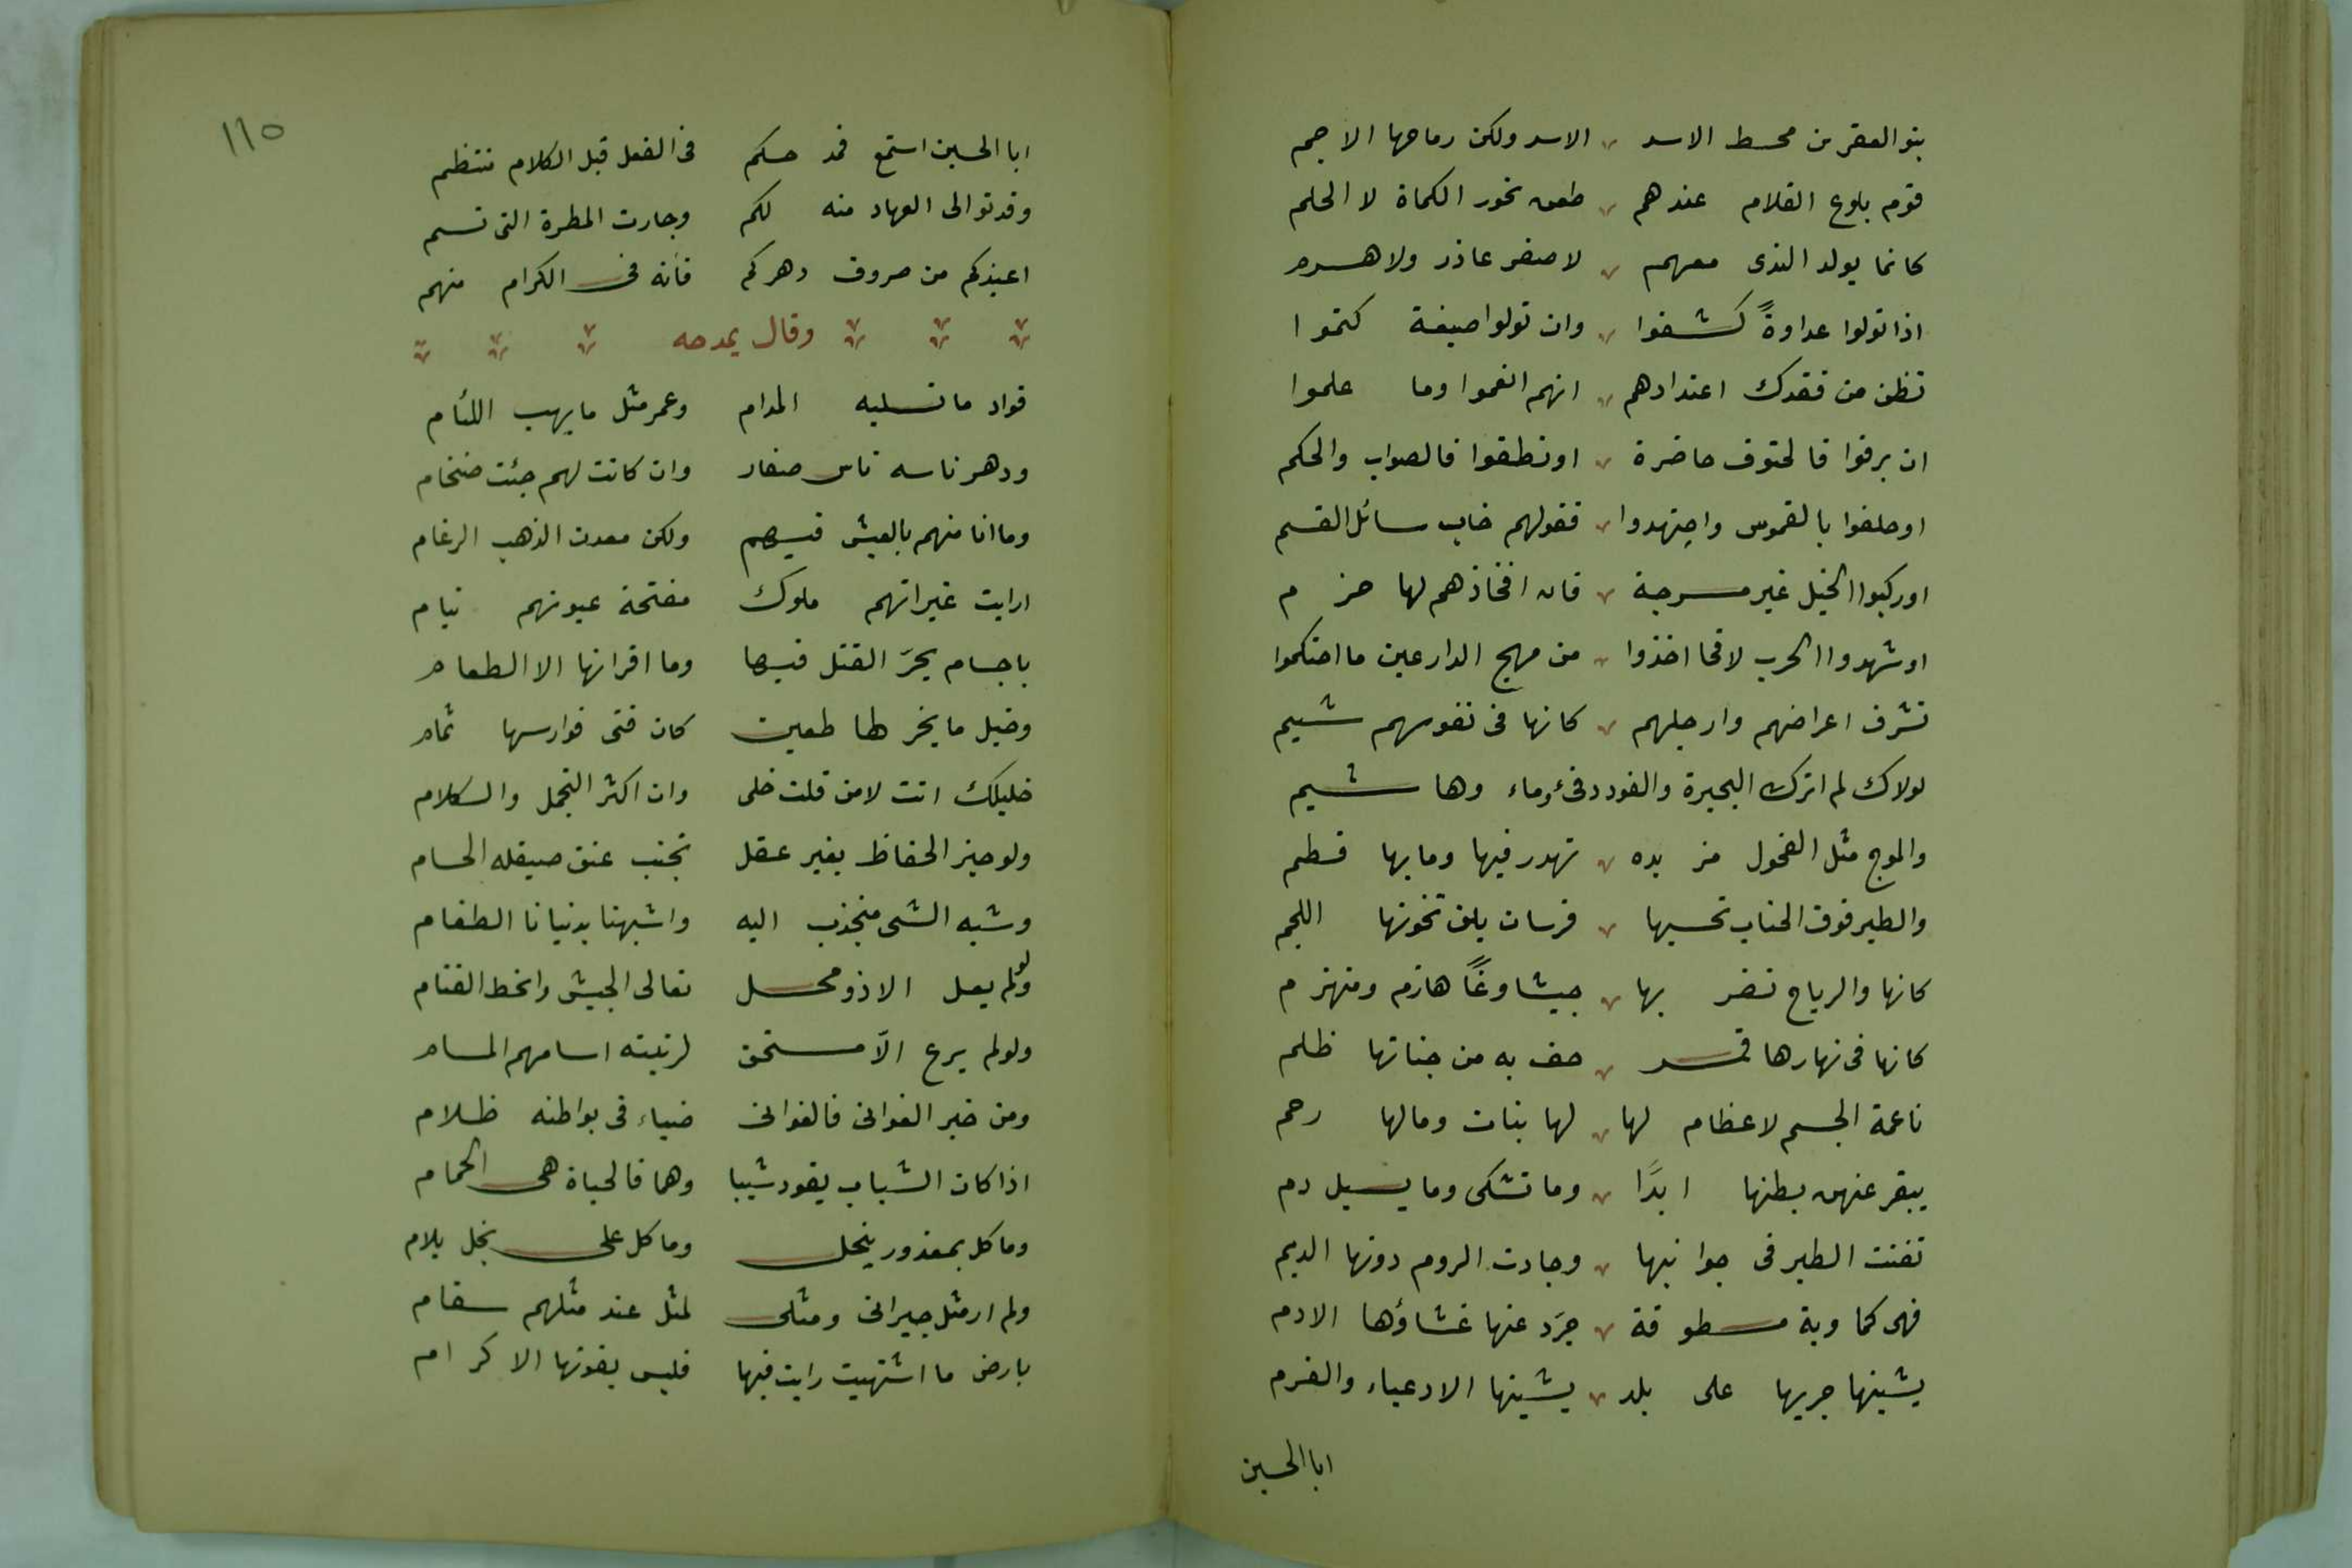 بنو العفر من محسط الاسد الاسد ولكن رماحها الاجم
قوم بلوغ الغلام عندهم طعن نحور الكماة لا الحلم
كانما يولد الندى معهم لا صغر عاذر ولا هرم
اذا تولوا عداوةً كشفوا وان تولوا صيغة كتموا
تظن من فقدك اعتدادهم انهم انعموا وما علموا
ان برقوا فالحتوف حاضرة او نطقوا فالصواب والحكم
او حلفوا بالغموس واجتهدوا فقولهم خاب سائل القسم
او ركبوا الخيل غير مسرجة فان افخاذهم لها حزم
او شهدوا الحرب لاقحا اخذوا من مهج الدارعين ما احتكموا
تشرق اعراضهم وارجلهم كانها فى نفوسهم شيم
لولاك لم اترك البحيرة والغور دفئ وماء وها شيم
والموج مثل الفحول مزبده تهدر فيها وما بها قطم
والطير فوق الحباب تحسبها فرسان بلق تخونها اللجم
كانها والرياح تضر بها جيشا وغًا هازم ومنهزم
كانها فى نهارها قمر حف به من جنانها ظلم
ناعمة الجسم لا عظام لها لها بنات ومالها رحم
يبقر عنهن بطنها ابدًا وما تشكى وما يسيل دم
تغنت الطير فى جوانبها وجادت الروم دونها الديم
فهى كماوية مسطوقة جرّد عنها غشاؤها الادم
يشينها جريها على بلد يشينها الادعياء والقزم
ابا الحسين
١١٥
ابا الحسين استمع فمد حكم فى الفعل قبل الكلام منتظم
وقد توالى العهاد منه لكم وجارت المطرة التى تسم
اعيذكم من صروف دهركم فانه فى الكرام متهم
وقال يمدحه
فواد ما تسليه المدام وعمر مثل ما يهب اللئام
ودهر ناسه ناس صغار وان كانت لهم جثت ضخام
وما انا منهم بالعيش فيهم ولكن معدن الذهب الرغام
ارايت غير انهم ملوك مفتحة عيونهم نيام
باجسام يحرّ القتل فيها وما اقرانها الا الطعام
وخيل ما يخر لها طعين كان قنى فوارسها ثمام
خليلك انت لا من قلت خلى وان اكثر التجمل والكلام
ولو حيز الحفاظ بغير عقل تجنب عنق صيقله الحسام
وشبه الشى منجذب اليه واشبهنا بدنيانا الطغام
ولو لم يعل الا ذو محل تعالى الجيش وانحط القتام
ولو لم يرع الّا مستحق لرتبته اسامهم المسام
ومن خبر الغوانى فالغوانى ضياء فى بواطنه ظلام
اذا كان الشباب يقود شيبا وهما فالحياة هى الحمام
وما كل بمعذور ببخل وما كل على بخل يلام
ولم ار مثل جيرانى ومثلى لمثل عند مثلهم سقام
بارض ما اشتهيت رايت فيها فليس يفوتها الا كرام